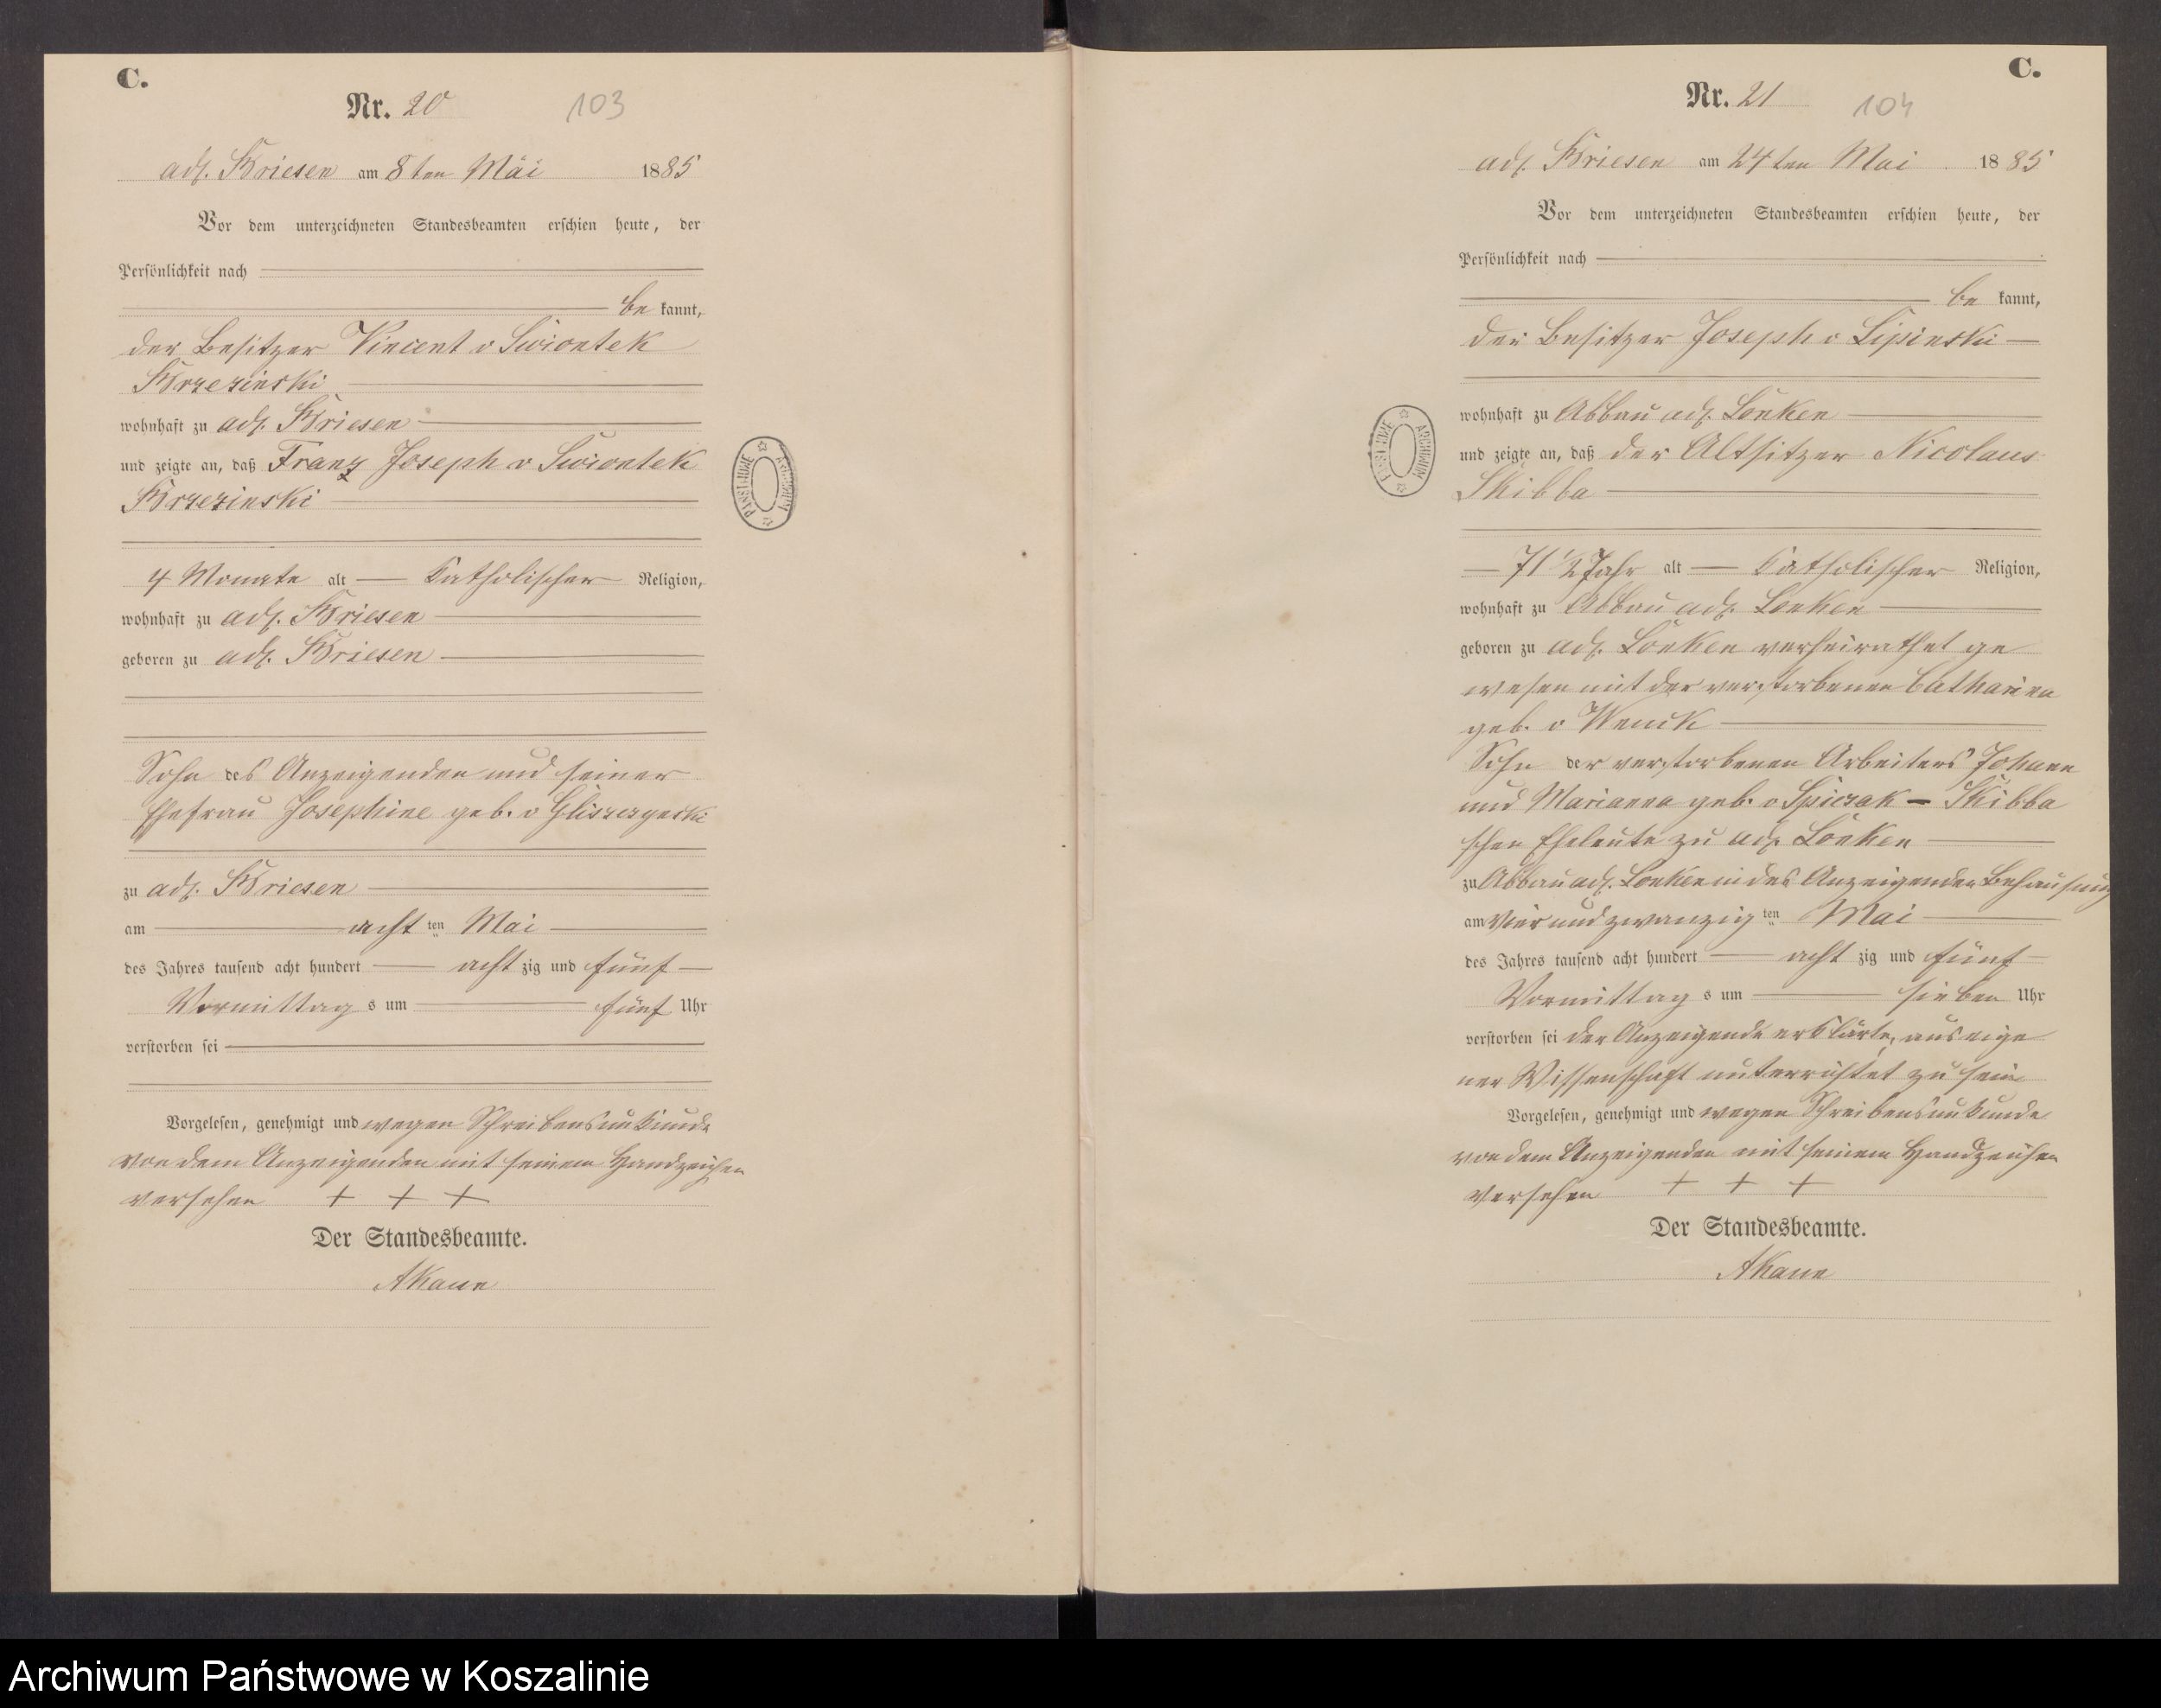 C.
Nr. 20 103
adl. Briesen am 8ten Mai 1885
Vor dem unterzeichneten Standesbeamten erschien heute, der
Persönlichkeit nach
be kannt,
der Besitzer Vincent v Swiontek
Brzezinski
wohnhaft zu adl. Briesen
und zeigte an, daß Franz Joseph v Swiontek
Brzezinski
4 Monate alt katholischer Religion,
wohnhaft zu adl. Briesen
geboren zu adl. Briesen
Sohn des Anzeigenden und seiner
Ehefrau Josephine geb. v
zu adl. Briesen
am acht ten Mai
des Jahres tausend acht hundert acht zig und fünf
Vormittag s um fünf Uhr
verstorben sei
Vorgelesen, genehmigt und wegen Schreibensunkunde
von dem Anzeigenden mit seinem Handzeichen
versehen + + +
Der Standesbeamte.
C.
Nr. 21 104
adl. Briesen am 24ten Mai 1885
Vor dem unterzeichneten Standesbeamten erschien heute, der
Persönlichkeit nach
be kannt,
der Besitzer Joseph v Lipinski
wohnhaft zu Abbau adl. Lonken
und zeigte an, daß der Altsitzer Nicolaus
Skibba
71 1/2 Jahr alt katholischer Religion,
wohnhaft zu Abbau adl. Lonken
geboren zu adl. Lonken verheirathet ge
wesen mit der verstorbenen Catharina
geb. v Wenck
Sohn der verstorbenen Arbeiters Johann
und Marianna geb. v Spiczak - Skibba
schen Eheleute zu adl. Lonken
zu Abbau adl. Lonken in des Anzeigenden Behausung
am vier und zwanzig ten Mai
des Jahres tausend acht hundert acht zig und fünf
Vormittag s um sieben Uhr
verstorben sei der Anzeigende erklärte, aus eige
ner Wissenschaft unterrichtet zu sein
Vorgelesen, genehmigt und wegen Schreibensunkunde
von dem Anzeigenden mit seinem Handzeichen
versehen + + +
Der Standesbeamte.
ARCHIWUM PAŃSTWOWE
ARCHIWUM PAŃSTWOWE
Archiwum Państwowe w Koszalinie